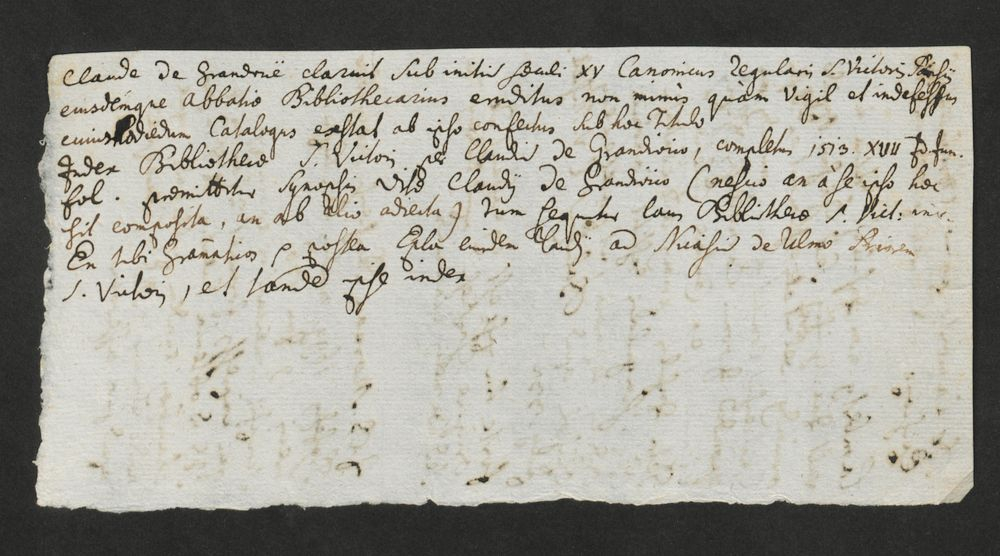 Claude de Grandrue claruit sub initiū seculi XV Canonicus regularis S. Victoris Parisijs
eiusdemque Abbatiæ Bibliothecarius eruditus non minùs quàm vigil et indefessus
cuius hodiedum Catalogus exstat ab ipso confectus sub hoc Titulo
Index Bibliothecæ S. Victoris per Claudiū de Grandivico, completus 1513. XVII
fol. præmittitur Synopsis Vitæ Claudij de Grandivico (nescio an à se ipso hæc
sit composita, an ab alio adiecta) tum sequitur laus Bibliothecæ S. Vict:
En tibi postea Epla eiusdem Claudij ad Nicasiū de Ulmo Priorem
S. Victoris, et tandē ipse index